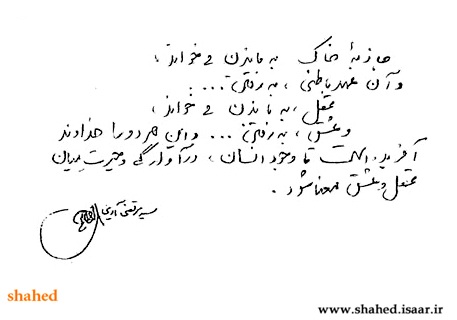 جاذبهٔ خاک به ماندن می‌خواند ،
و آن عهد باطنی ، به رفتن ... .
عقل ، به ماندن می‌خواند ،
و عشق ، به رفتن ... و این هر دو را خداوند
آفریده است تا وجود انسان ، در آوارگی و حیرت میان
عقل و عشق معنا شود .
سید مرتضی آوینی
shahed
www.shahed.isaar.ir